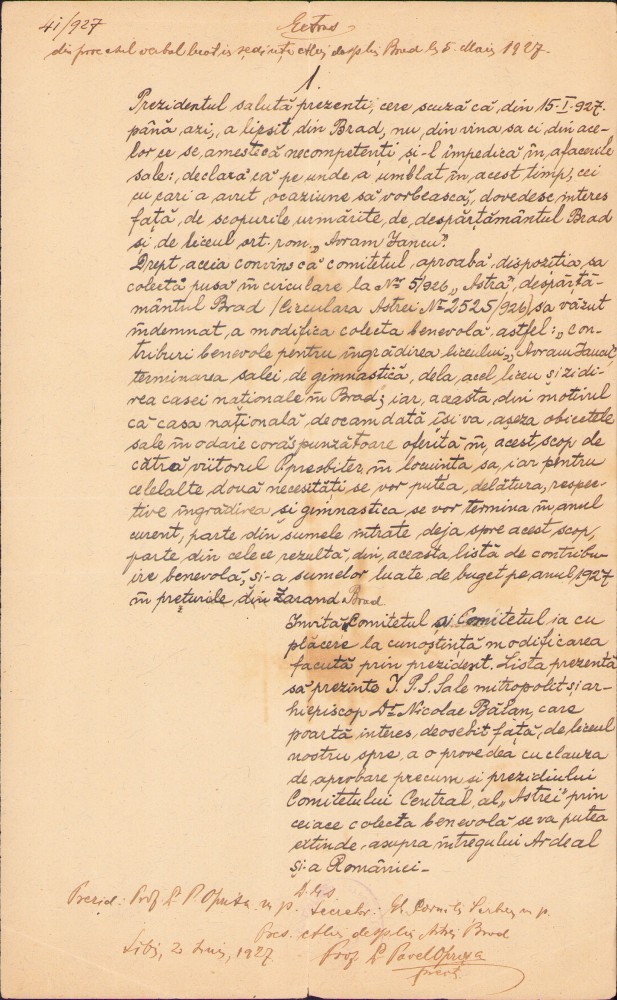 41/927 Extras
din procesul verbal luat în ședința desp Brad la 5. Maiu 1927.
1.
Prezidentul salută prezenti, cere scuză că din 15-I-927.
până azi, a lipsit din Brad, nu din vina sa ci din ace-
lor ce se amestică necompetenți și-l impedică în afacerile
sale: declară că pe unde a umblat în acest timp, cei
cu cari a avut ocaziune să vorbească, dovedesc interes
față de scopurile urmărite de despărțământul Brad
și de liceul ort. rom. „Avram Iancu".
Drept aceia convins că comitetul aprobă dispoziția sa
colectă pusă în circulare la No 5/926 „Astra", despărță-
mântul Brad /Circulara Astrei No 2525/926/ sa văzut
îndemnat a modifica colecta benevolă astfel: „con-
triburi benevole pentru îngrădirea liceului „Avram Iancu",
terminarea salei de gimnastică dela acel liceu și zidi-
rea casei nationale în Brad; iar aceasta din motivul
că casa națională deocamdată își va așeza obiectele
sale în odaie corăspunzătoare oferită în acest scop de
cătră viitorul Ppresbiter în locuința sa, iar pentru
celelalte două necesități se vor putea delătura, respec-
tive îngrădirea și gimnastica se vor termina în anul
curent, parte din sumele intrate deja spre acest scop,
parte din cele ce rezultă din aceasta listă de contribu-
ire benevolă, și-a sumelor luate de buget pe anul 1927
în preturile din Zarand Brad.
Invită Comitetul și Comitetul ia cu
plăcere la cunoștință modificarea
facută prin prezident. Lista prezentă
să prezinte I.P.S. Sale mitropolit și ar-
hiepiscop Dr Nicolae Bălan, care
poartă interes deosebit față de liceul
nostru spre a o provedea cu clauza
de aprobare precum și prezidiului
Comitetului Central al „Astrei" prin
ceiace colecta benevolă se va putea
extinde asupra întregului Ardeal
și-a României -
Prezid: Prof. P. Oprișa m.p. Secretar: Corneliu m.p.
Pres. desp Brad
Sibiu, 2 Iuniu, 1927. Prof. Pavel Oprișa